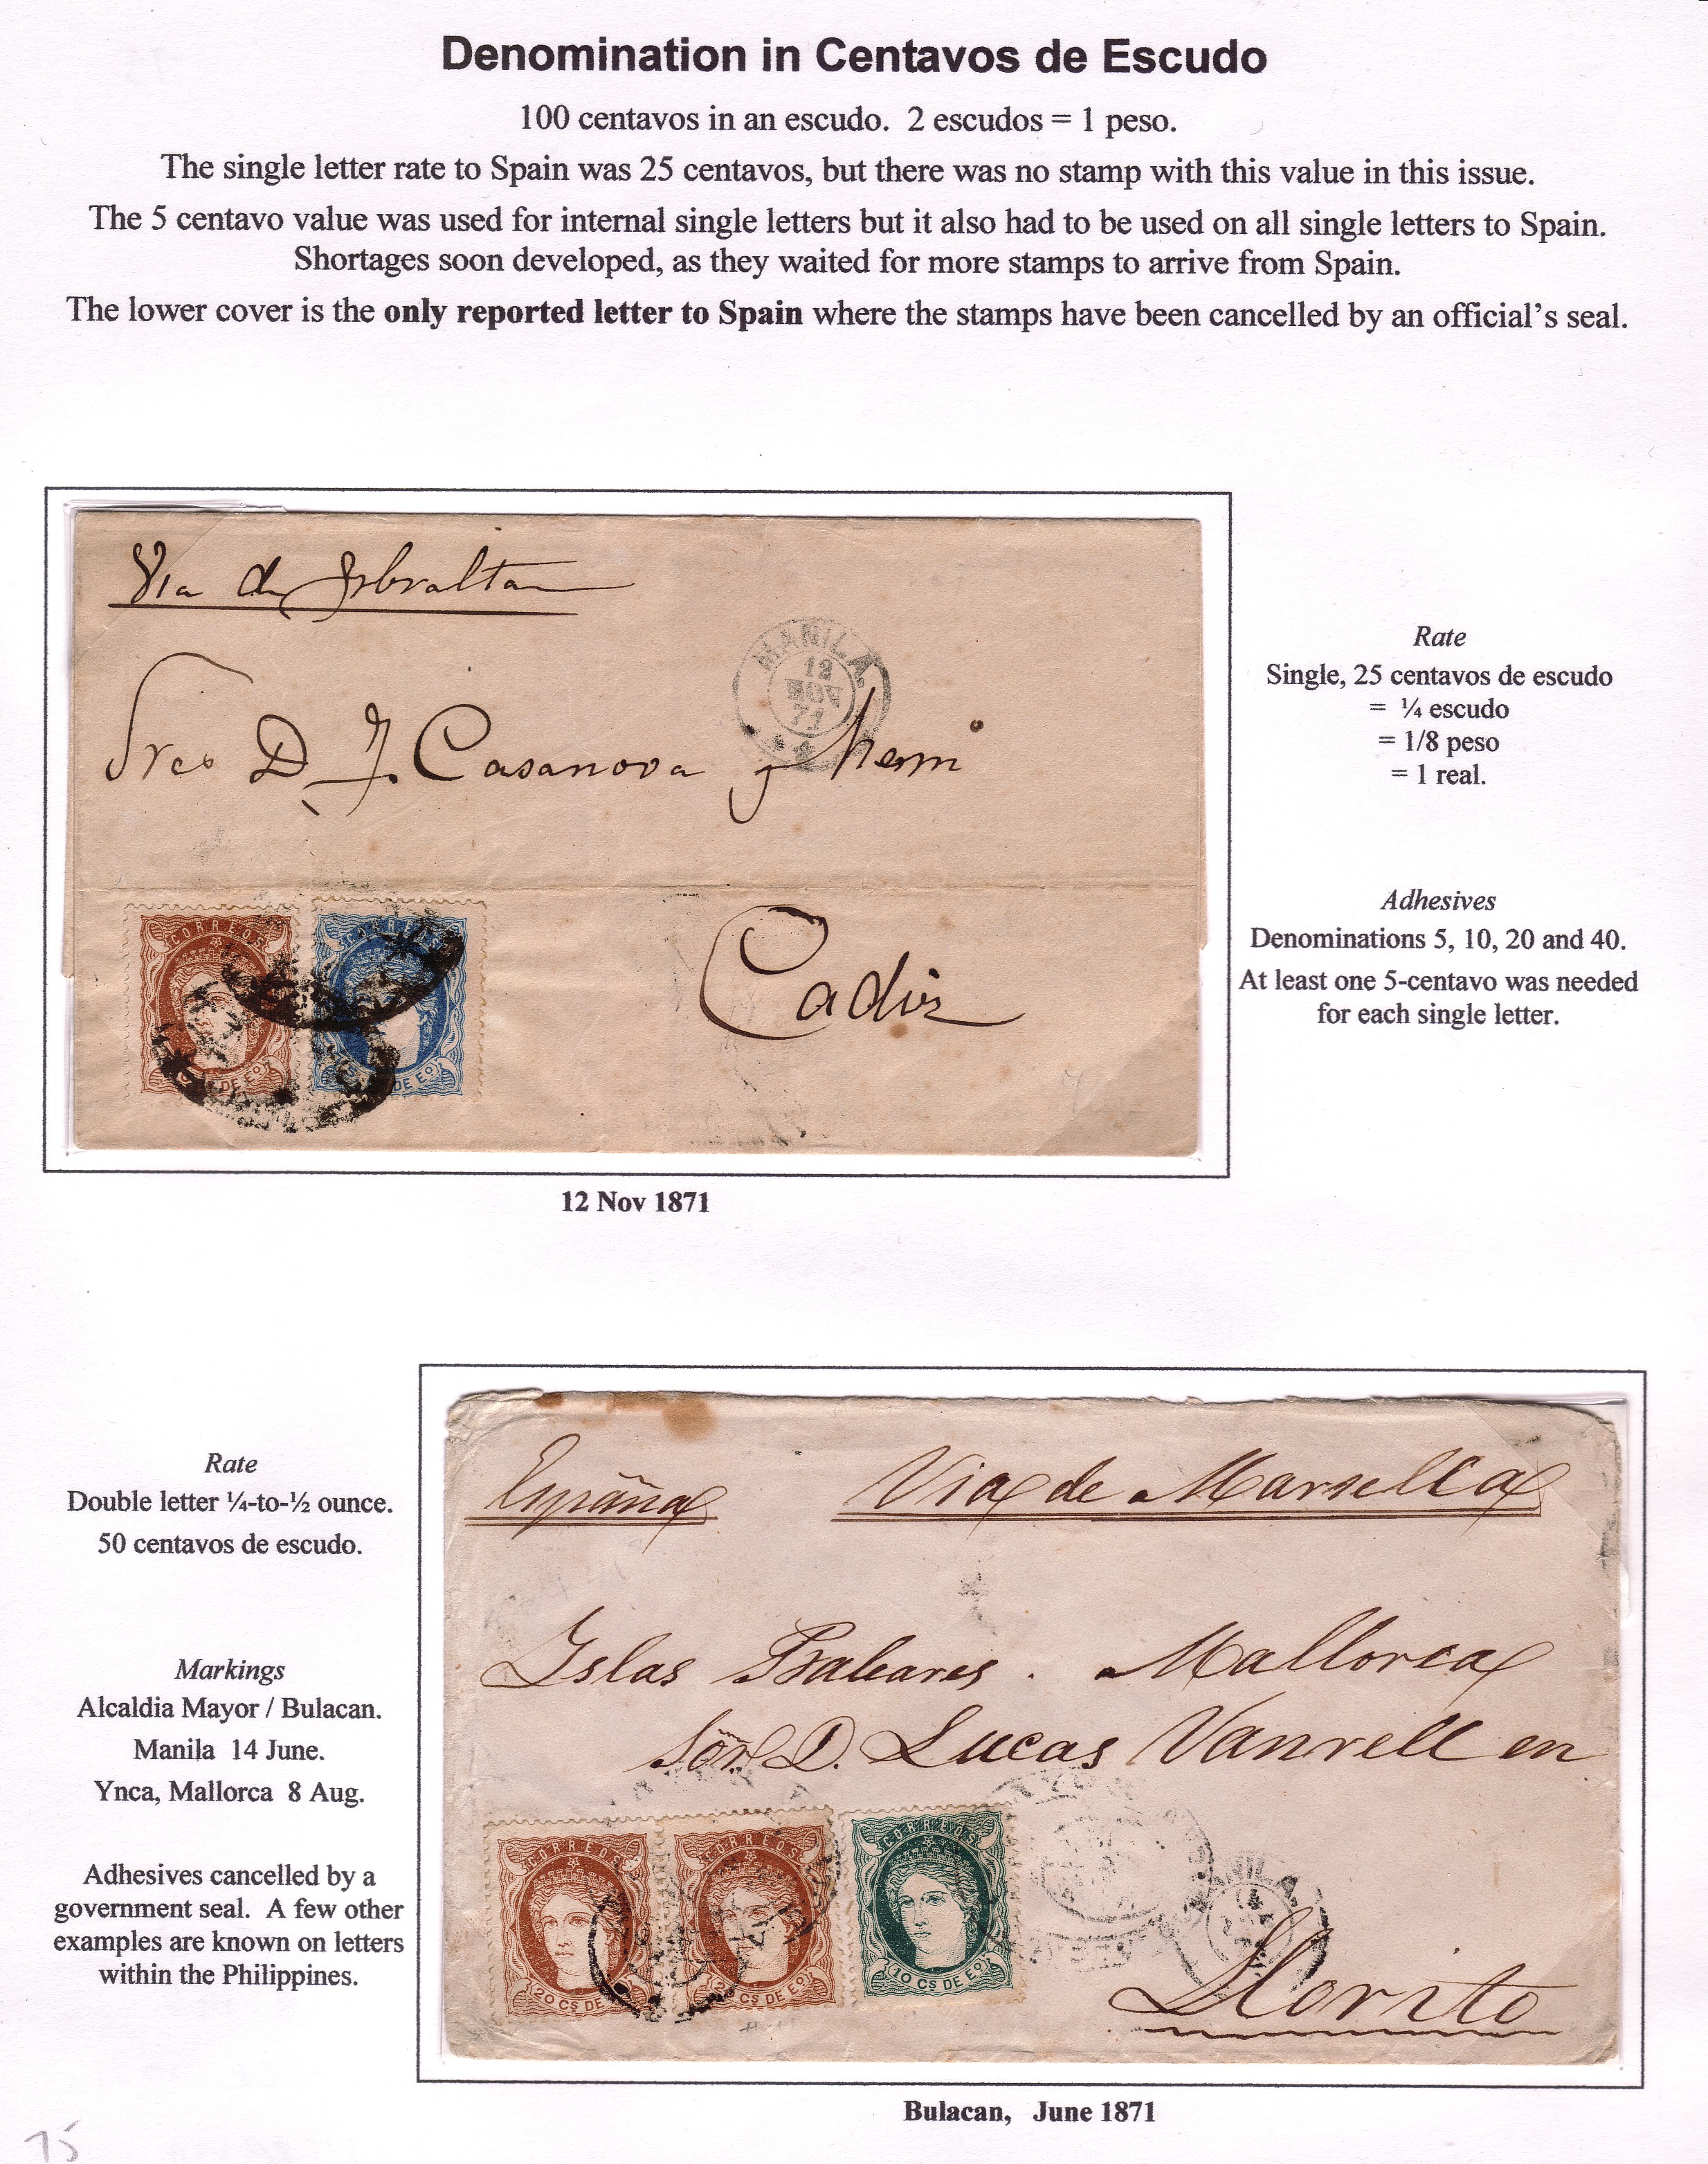 Denomination in Centavos de Escudo
100 centavos in an escudo. 2 escudos = 1 peso.
The single letter rate to Spain was 25 centavos, but there was no stamp with this value in this issue.
The 5 centavo value was used for internal single letters but it also had to be used on all single letters to Spain.
Shortages soon developed, as they waited for more stamps to arrive from Spain.
The lower cover is the only reported letter to Spain where the stamps have been cancelled by an official's seal.
Via de Gibraltar
MANILA
12
NOV
71
Sres D J. Casanova y herm
Cadiz
CORREOS
DE Eo
CORREOS
DE Eo
Rate
Single, 25 centavos de escudo
= ¼ escudo
= 1/8 peso
= 1 real.
Adhesives
Denominations 5, 10, 20 and 40.
At least one 5-centavo was needed
for each single letter.
12 Nov 1871
Rate
Double letter ¼-to-½ ounce.
50 centavos de escudo.
Markings
Alcaldia Mayor / Bulacan.
Manila 14 June.
Ynca, Mallorca 8 Aug.
Adhesives cancelled by a
government seal. A few other
examples are known on letters
within the Philippines.
España Via de Marsella
Islas Baleares. Mallorca
Sor. D. Lucas Vanrell en
CORREOS
20 Cs DE
CORREOS
Cs DE Eo
CORREOS
10 Cs DE Eo
MANILA
14
Llorito
Bulacan, June 1871
75